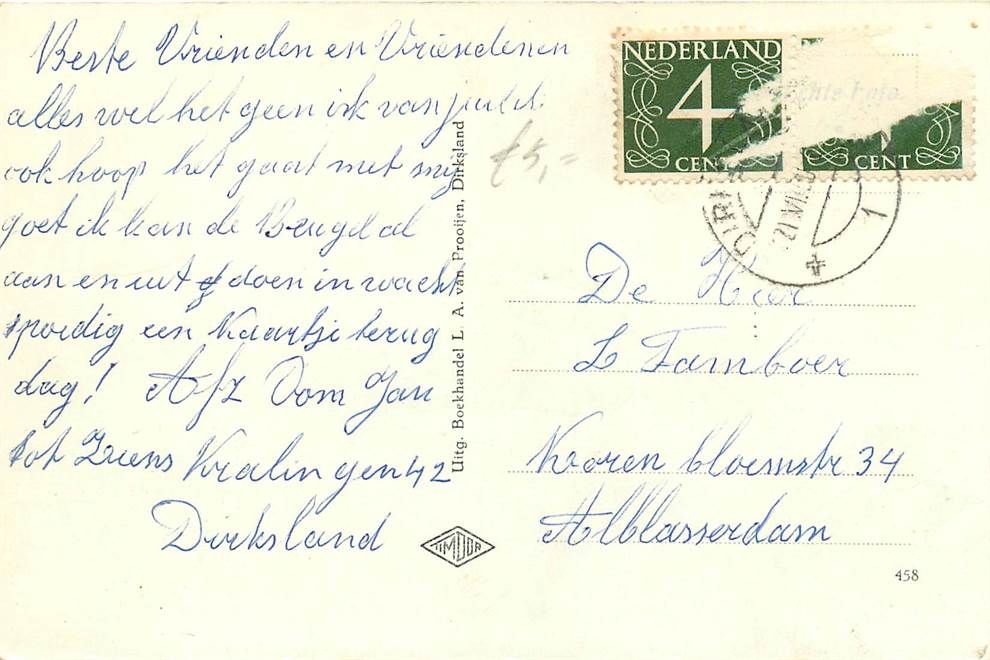 Beste Vrienden en Vriendenen
alles wel het geen ik van jullie
ook hoop het gaat met mij
goet ik kan de Beugel al
aan en uit doen in wacht
spoedig een kaartje terug
dag! Afz Oom Jan
tot Ziens Kralingen 42
Dirksland
Uitg. Boekhandel L. A. van Prooijen, Dirksland
TIMDOR
f 5,=
NEDERLAND
4
CENT
CENT
Echte Foto
1
De Heer
L Tamboer
Kooren bloemstr 34
Alblasserdam
458